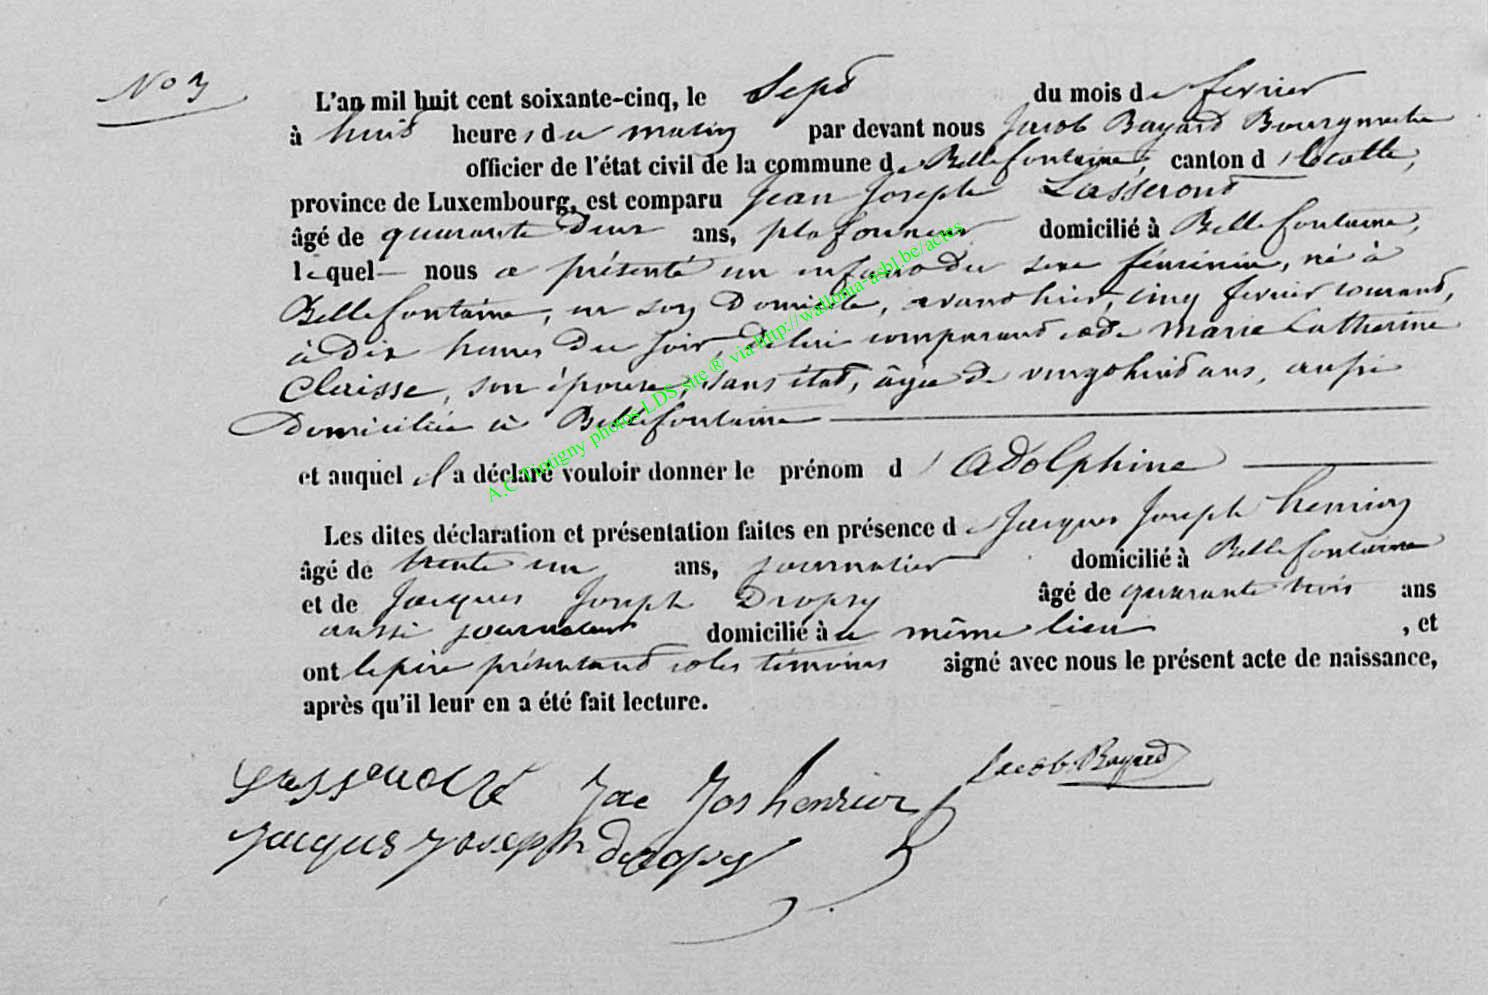 No 3
L'an mil huit cent soixante-cinq, le Sept du mois de fevrier
à huit heures du matin par devant nous Jacob Bayard Bourgmestre
officier de l'état civil de la commune de Bellefontaine, canton d'
province de Luxembourg, est comparu Jean Joseph Lasseront
âgé de quarante deux ans, plafonneur domicilié à Bellefontaine,
lequel nous a présenté un enfant du sexe féminin, né à
Bellefontaine, en son Domicile, avant hier, cinq fevrier courant,
à dix heures du soir, de lui comparant et de Marie Catherine
Claisse, son épouse, sans état, âgée de vingt huit ans, aussi
Domiciliée à Bellefontaine
et auquel il a déclaré vouloir donner le prénom d'Adolphine
Les dites déclaration et présentation faites en présence de Jacques Joseph henrion
âgé de trente un ans, journalier domicilié à Bellefontaine
et de Jacques Joseph Dropsy âgé de quarante trois ans
aussi journalier domicilié à ce même lieu , et
ont le père présentant et les témoins signé avec nous le présent acte de naissance,
après qu'il leur en a été fait lecture.
Jacob Bayard
Jac Jos henrion
Jacques Joseph dropsy
A.C Tintigny photos LDS site ® via http://wallonia-asbl.be/actes